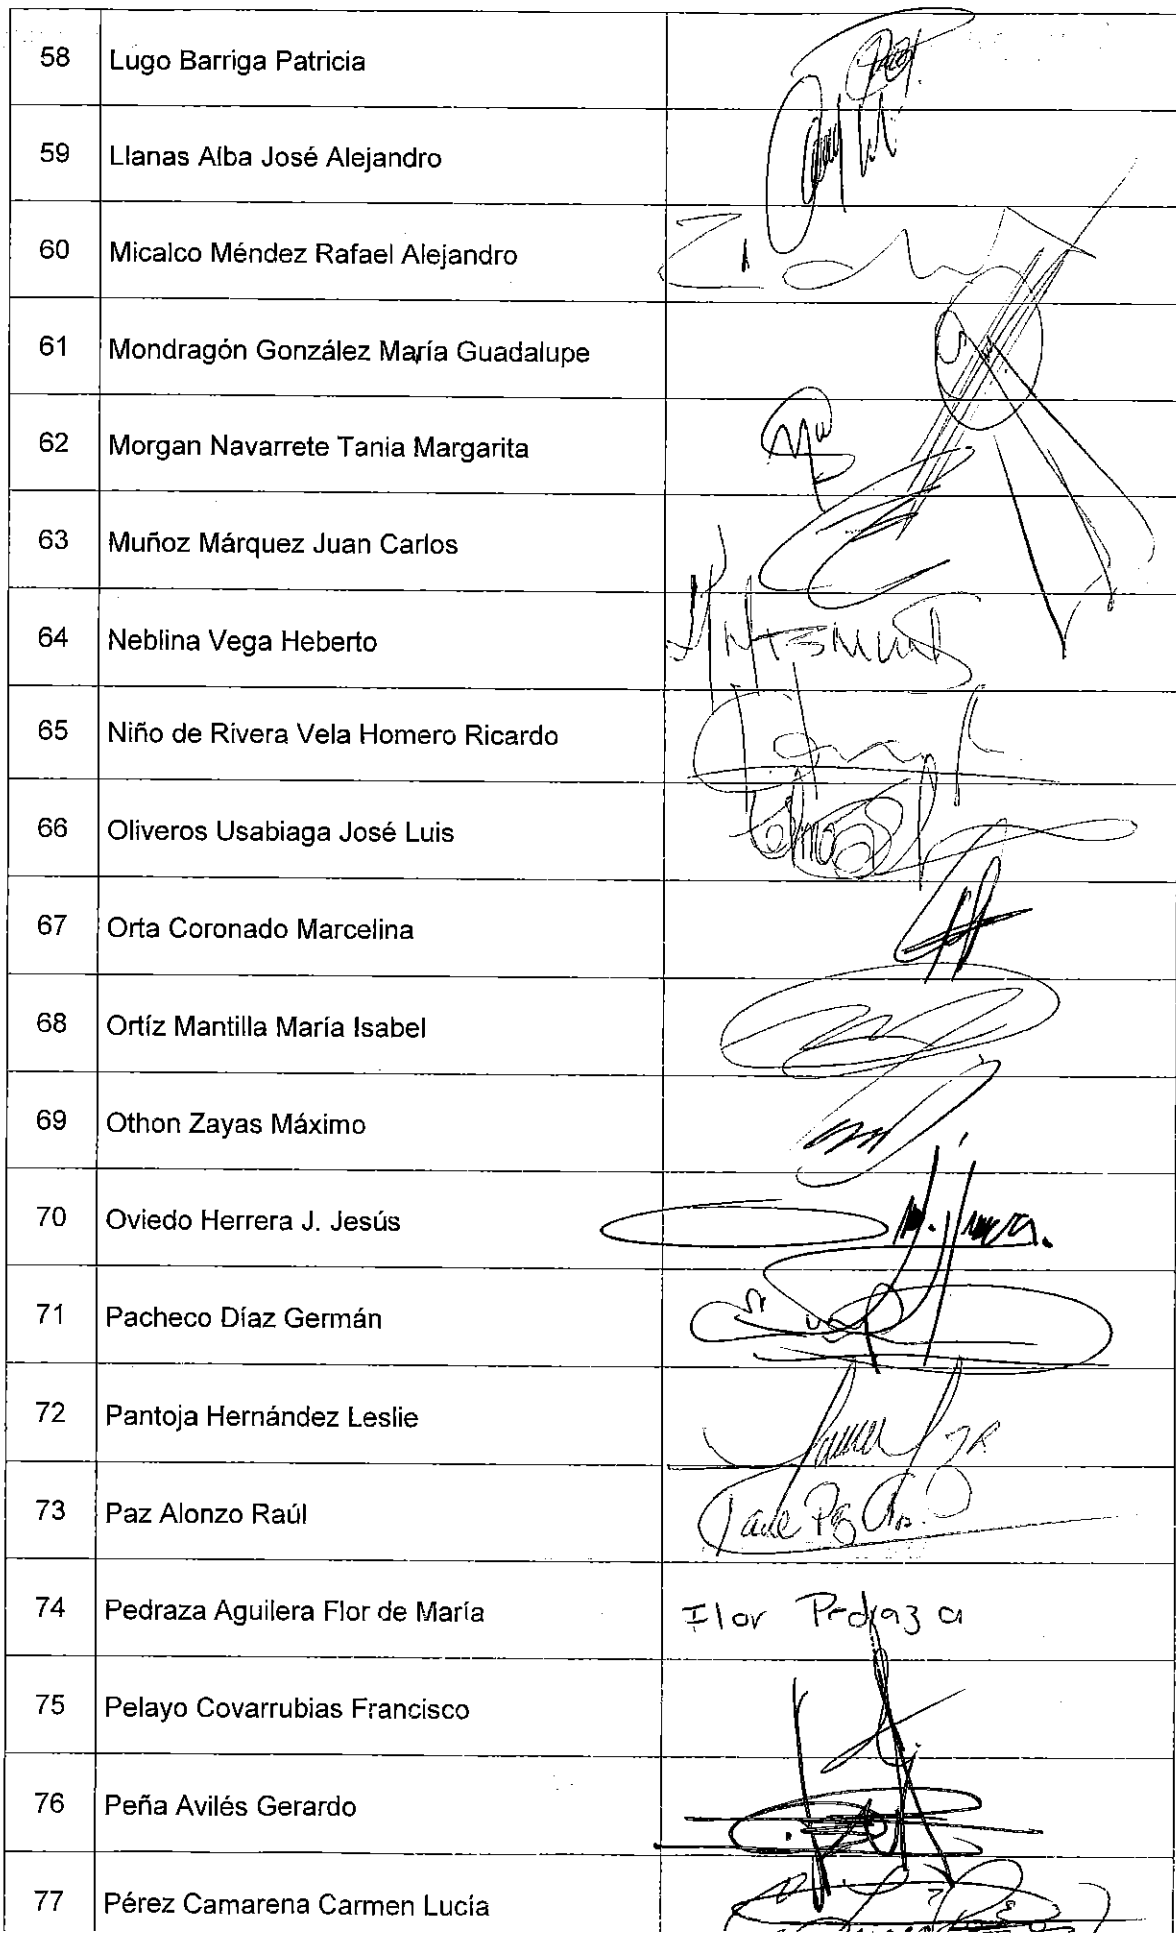 58 Lugo Barriga Patricia
59 Llanas Alba José Alejandro
60 Micalco Méndez Rafael Alejandro
61 Mondragón González María Guadalupe
62 Morgan Navarrete Tania Margarita
63 Muñoz Márquez Juan Carlos
64 Neblina Vega Heberto
65 Niño de Rivera Vela Homero Ricardo
66 Oliveros Usabiaga José Luis
67 Orta Coronado Marcelina
68 Ortíz Mantilla María Isabel
69 Othon Zayas Máximo
70 Oviedo Herrera J. Jesús
71 Pacheco Díaz Germán
72 Pantoja Hernández Leslie
73 Paz Alonzo Raúl
74 Pedraza Aguilera Flor de María Flor Pedraza
75 Pelayo Covarrubias Francisco
76 Peña Avilés Gerardo
77 Pérez Camarena Carmen Lucía